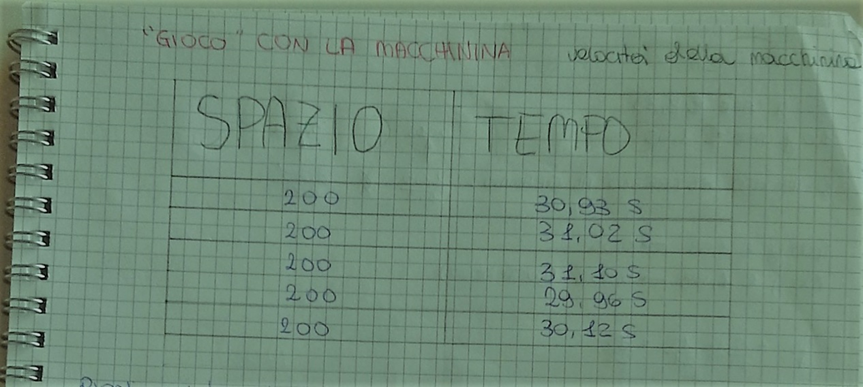 "GIOCO" CON LA MACCHININA velocità della macchinina
SPAZIO TEMPO
200 30,93 s
200 31,02 s
200 31,10 s
200 29,96 s
200 30,12 s